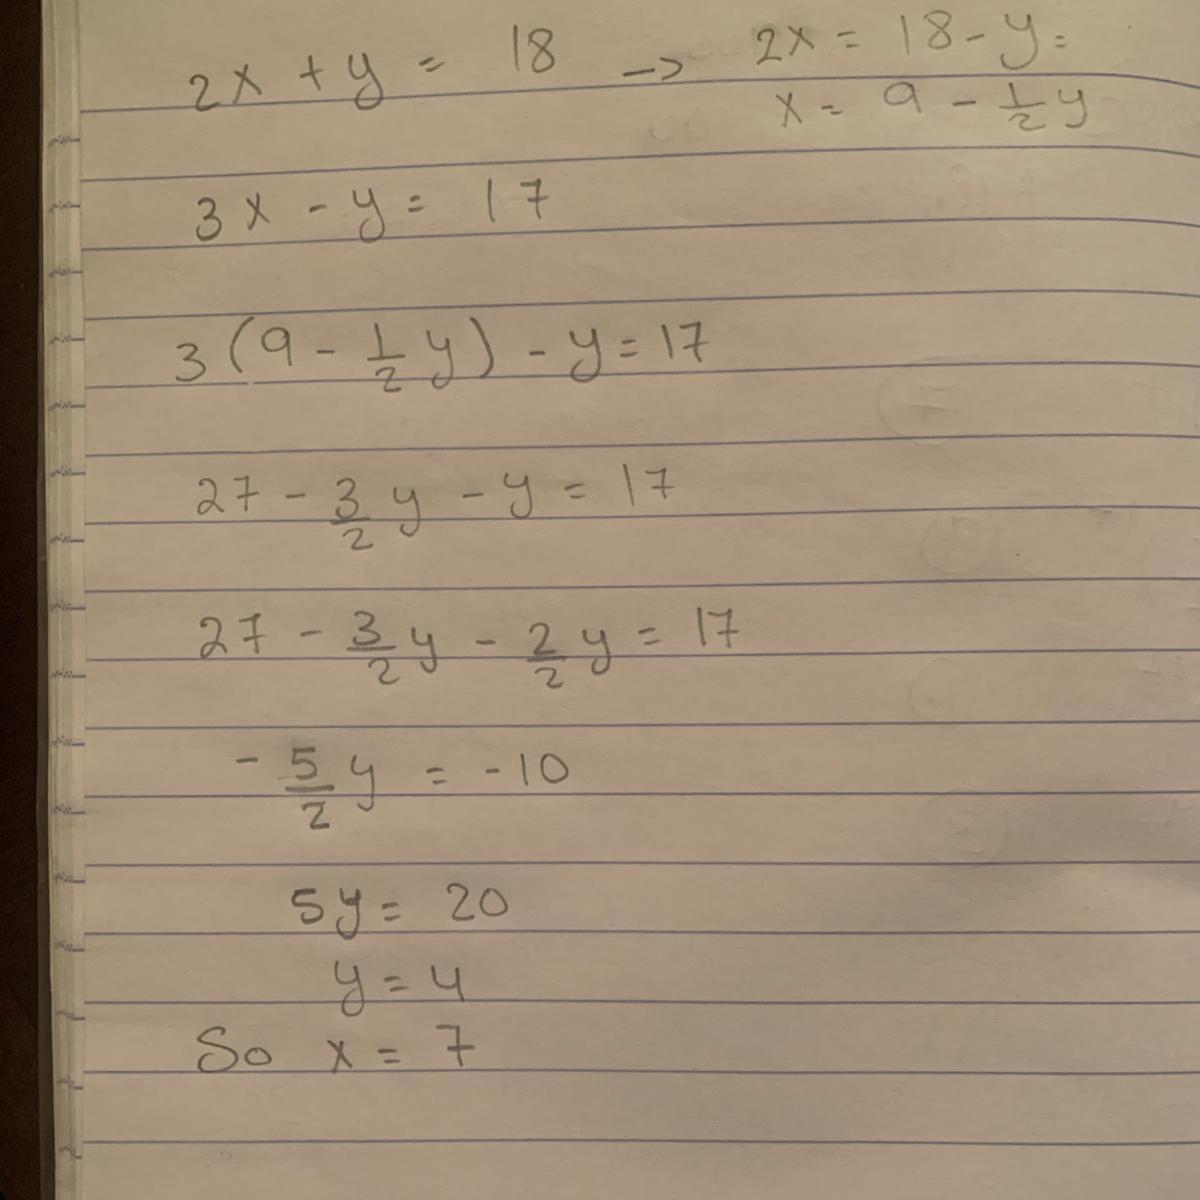 2x + y = 18 -> 2x = 18 - y =
x = 9 - 1/2 y
3x - y = 17
3(9 - 1/2 y) - y = 17
27 - 3/2 y - y = 17
27 - 3/2 y - 2/2 y = 17
- 5/2 y = -10
5y = 20
y = 4
So x = 7